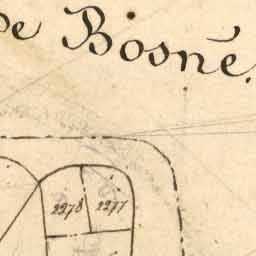 Bosně.
2278 2277